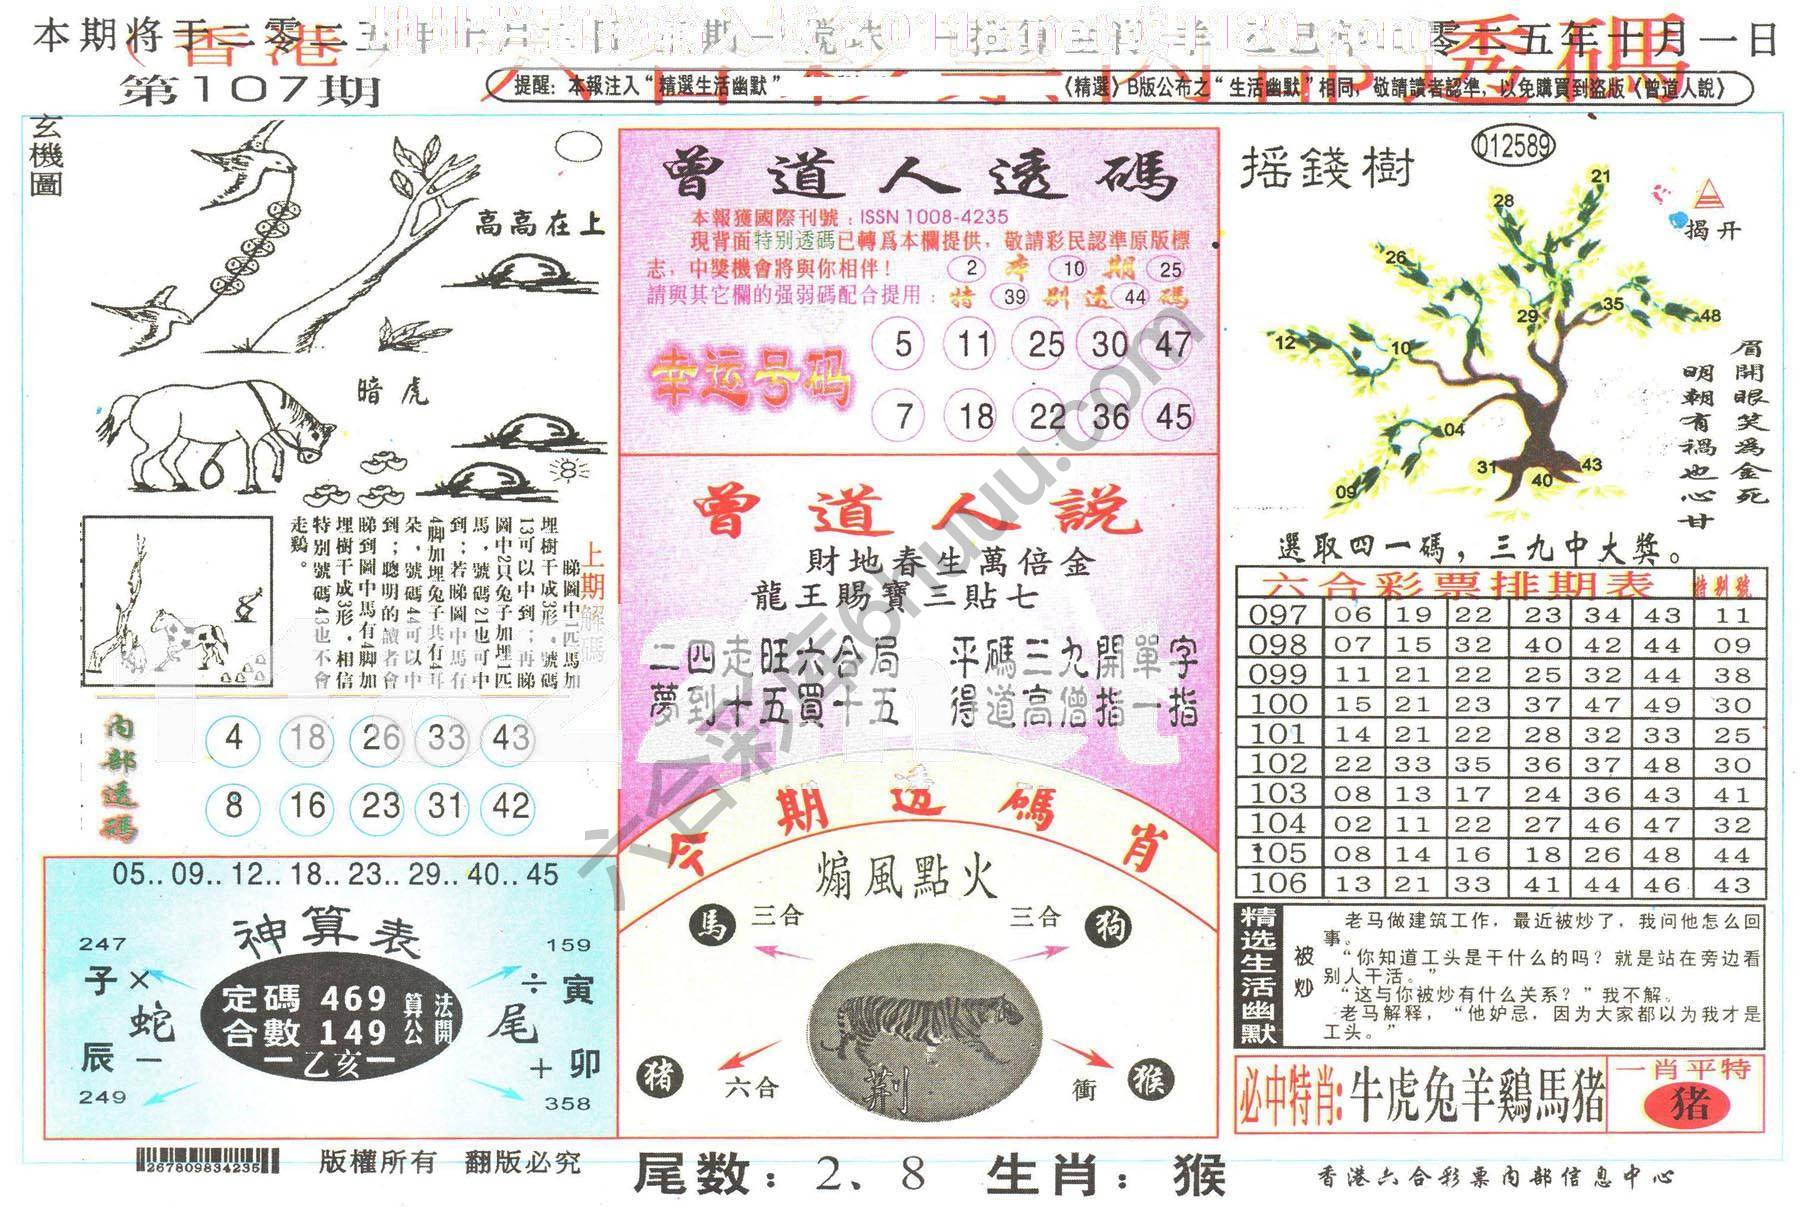 本期將于二零二五年十月
零二五年十月一日
（香港）
透碼
第107期
提醒：本報注入“精選生活幽默”
《精選》B版公布之“生活幽默”相同，敬請讀者認準，以免購買到盜版《曾道人說》
玄機圖
高高在上
暗虎
8
上期解碼
睇圖中1匹馬加
埋樹干成3形，號碼
13可以中到；再睇
圖中2只兔子加埋1匹
馬，號碼21也可中
到；若睇圖中馬有
4脚加埋兔子共有4耳
朵，號碼44可以中
到；聰明的讀者會
睇到圖中馬有4脚加
埋樹干成3形，相信
特别號碼43也不會
走鷄。
内部透碼
4 18 26 33 43
8 16 23 31 42
05..09..12..18..23..29..40..45
神算表
247
159
子 × 蛇
÷ 寅
尾
定碼 469
合數 149
算法公開
一乙亥一
辰 一
+ 卯
249
358
曾道人透碼
本報獲國際刊號：ISSN 1008-4235
現背面特别透碼已轉爲本欄提供，敬請彩民認準原版標
志，中獎機會將與你相伴！ 2 本 10 期 25
請與其它欄的强弱碼配合提用：特 39 别 透 44 碼
幸运号码
5 11 25 30 47
7 18 22 36 45
曾道人説
財地春生萬倍金
龍王賜寶三貼七
二四走旺六合局 平碼三九開單字
夢到十五買十五 得道高僧指一指
今期透碼肖
煽風點火
馬 三合
三合 狗
豬 六合
衝 猴
荆
摇錢樹
012589
揭开
21
28
26
35
29
48
12
10
04
31
43
40
09
眉開眼笑為金死
明朝有禍也心甘
選取四一碼，三九中大獎。
六合彩票排期表 特别號
097 06 19 22 23 34 43 11
098 07 15 32 40 42 44 09
099 11 21 22 25 32 44 38
100 15 21 23 37 47 49 30
101 14 21 22 28 32 33 25
102 22 33 35 36 37 48 30
103 08 13 17 24 36 43 41
104 02 11 22 27 46 47 32
105 08 14 16 18 26 48 44
106 13 21 33 41 44 46 43
精选生活幽默
被炒
老马做建筑工作，最近被炒了，我问他怎么回
事。
“你知道工头是干什么的吗？就是站在旁边看
别人干活。”
“这与你被炒有什么关系？”我不解。
老马解释，“他妒忌，因为大家都以为我才是
工头。”
必中特肖：牛虎兔羊鷄馬猪
一肖平特
猪
267809834235
版權所有 翻版必究
尾数：2、8 生肖：猴
香港六合彩票内部信息中心
六合彩库6huuu.com